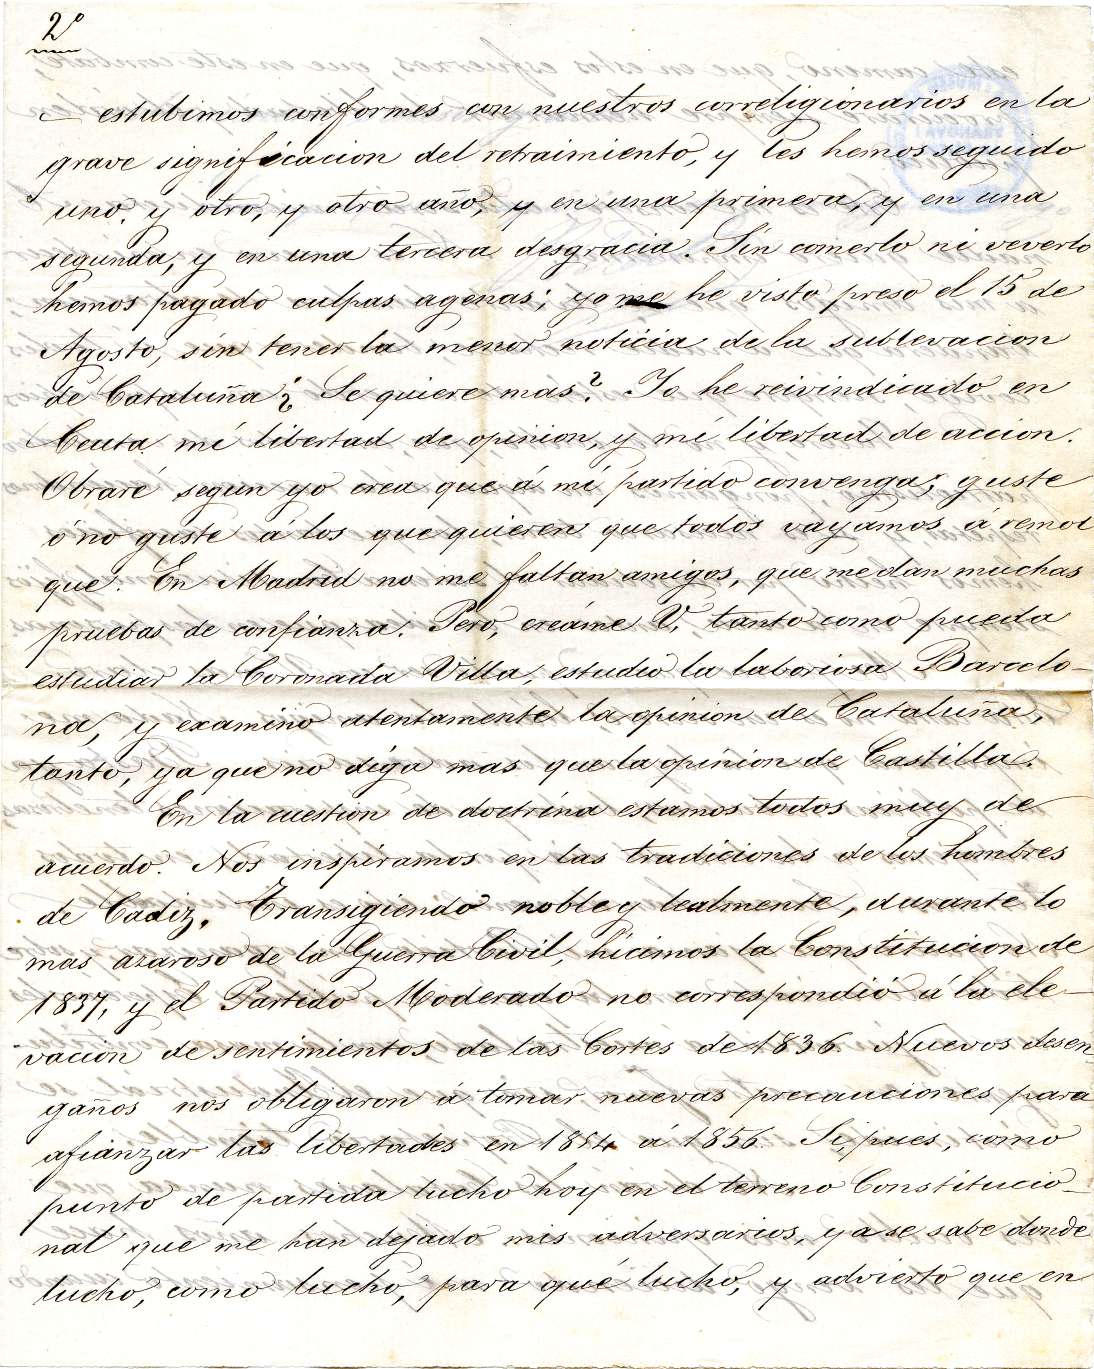 2º
estubimos conformes con nuestros correligionarios en la
grave significacion del retraimiento, y les hemos seguido
uno, y otro, y otro año, y en una primera, y en una
segunda, y en una tercera desgracia. Sin comerlo ni veverlo
hemos pagado culpas agenas; yo me he visto preso el 15 de
Agosto, sin tener la menor noticia de la sublevacion
de Cataluña ¿ Se quiere mas? Yo he reivindicado en
Ceuta mi libertad de opinion, y mi libertad de accion.
Obraré segun yo crea que á mi partido convenga; guste
ó no guste á los que quieren que todos vayamos á remol
que. En Madrid no me faltan amigos, que me dan muchas
pruebas de confianza. Pero, creáme V, tanto como pueda
estudiar la Coronada Villa, estudio la laboriosa Barcelo-
na, y examino atentamente la opinion de Cataluña,
tanto, ya que no diga mas que la opinion de Castilla.
En la cuestion de doctrina estamos todos muy de
acuerdo. Nos inspiramos en las tradiciones de los hombres
de Cadiz. Transigiendo noble y lealmente, durante lo
mas azaroso de la Guerra Civil, hicimos la Constitucion de
1837, y el Partido Moderado no correspondió á la ele-
vacion de sentimientos de las Cortes de 1836. Nuevos desen-
gaños nos obligaron á tomar nuevas precauciones para
afianzar las libertades en 1854 á 1856. Si, pues, como
punto de partida lucho hoy en el terreno Constitucio-
nal que me han dejado mis adversarios, ya se sabe donde
lucho, como lucho, para qué lucho, y advierto que en